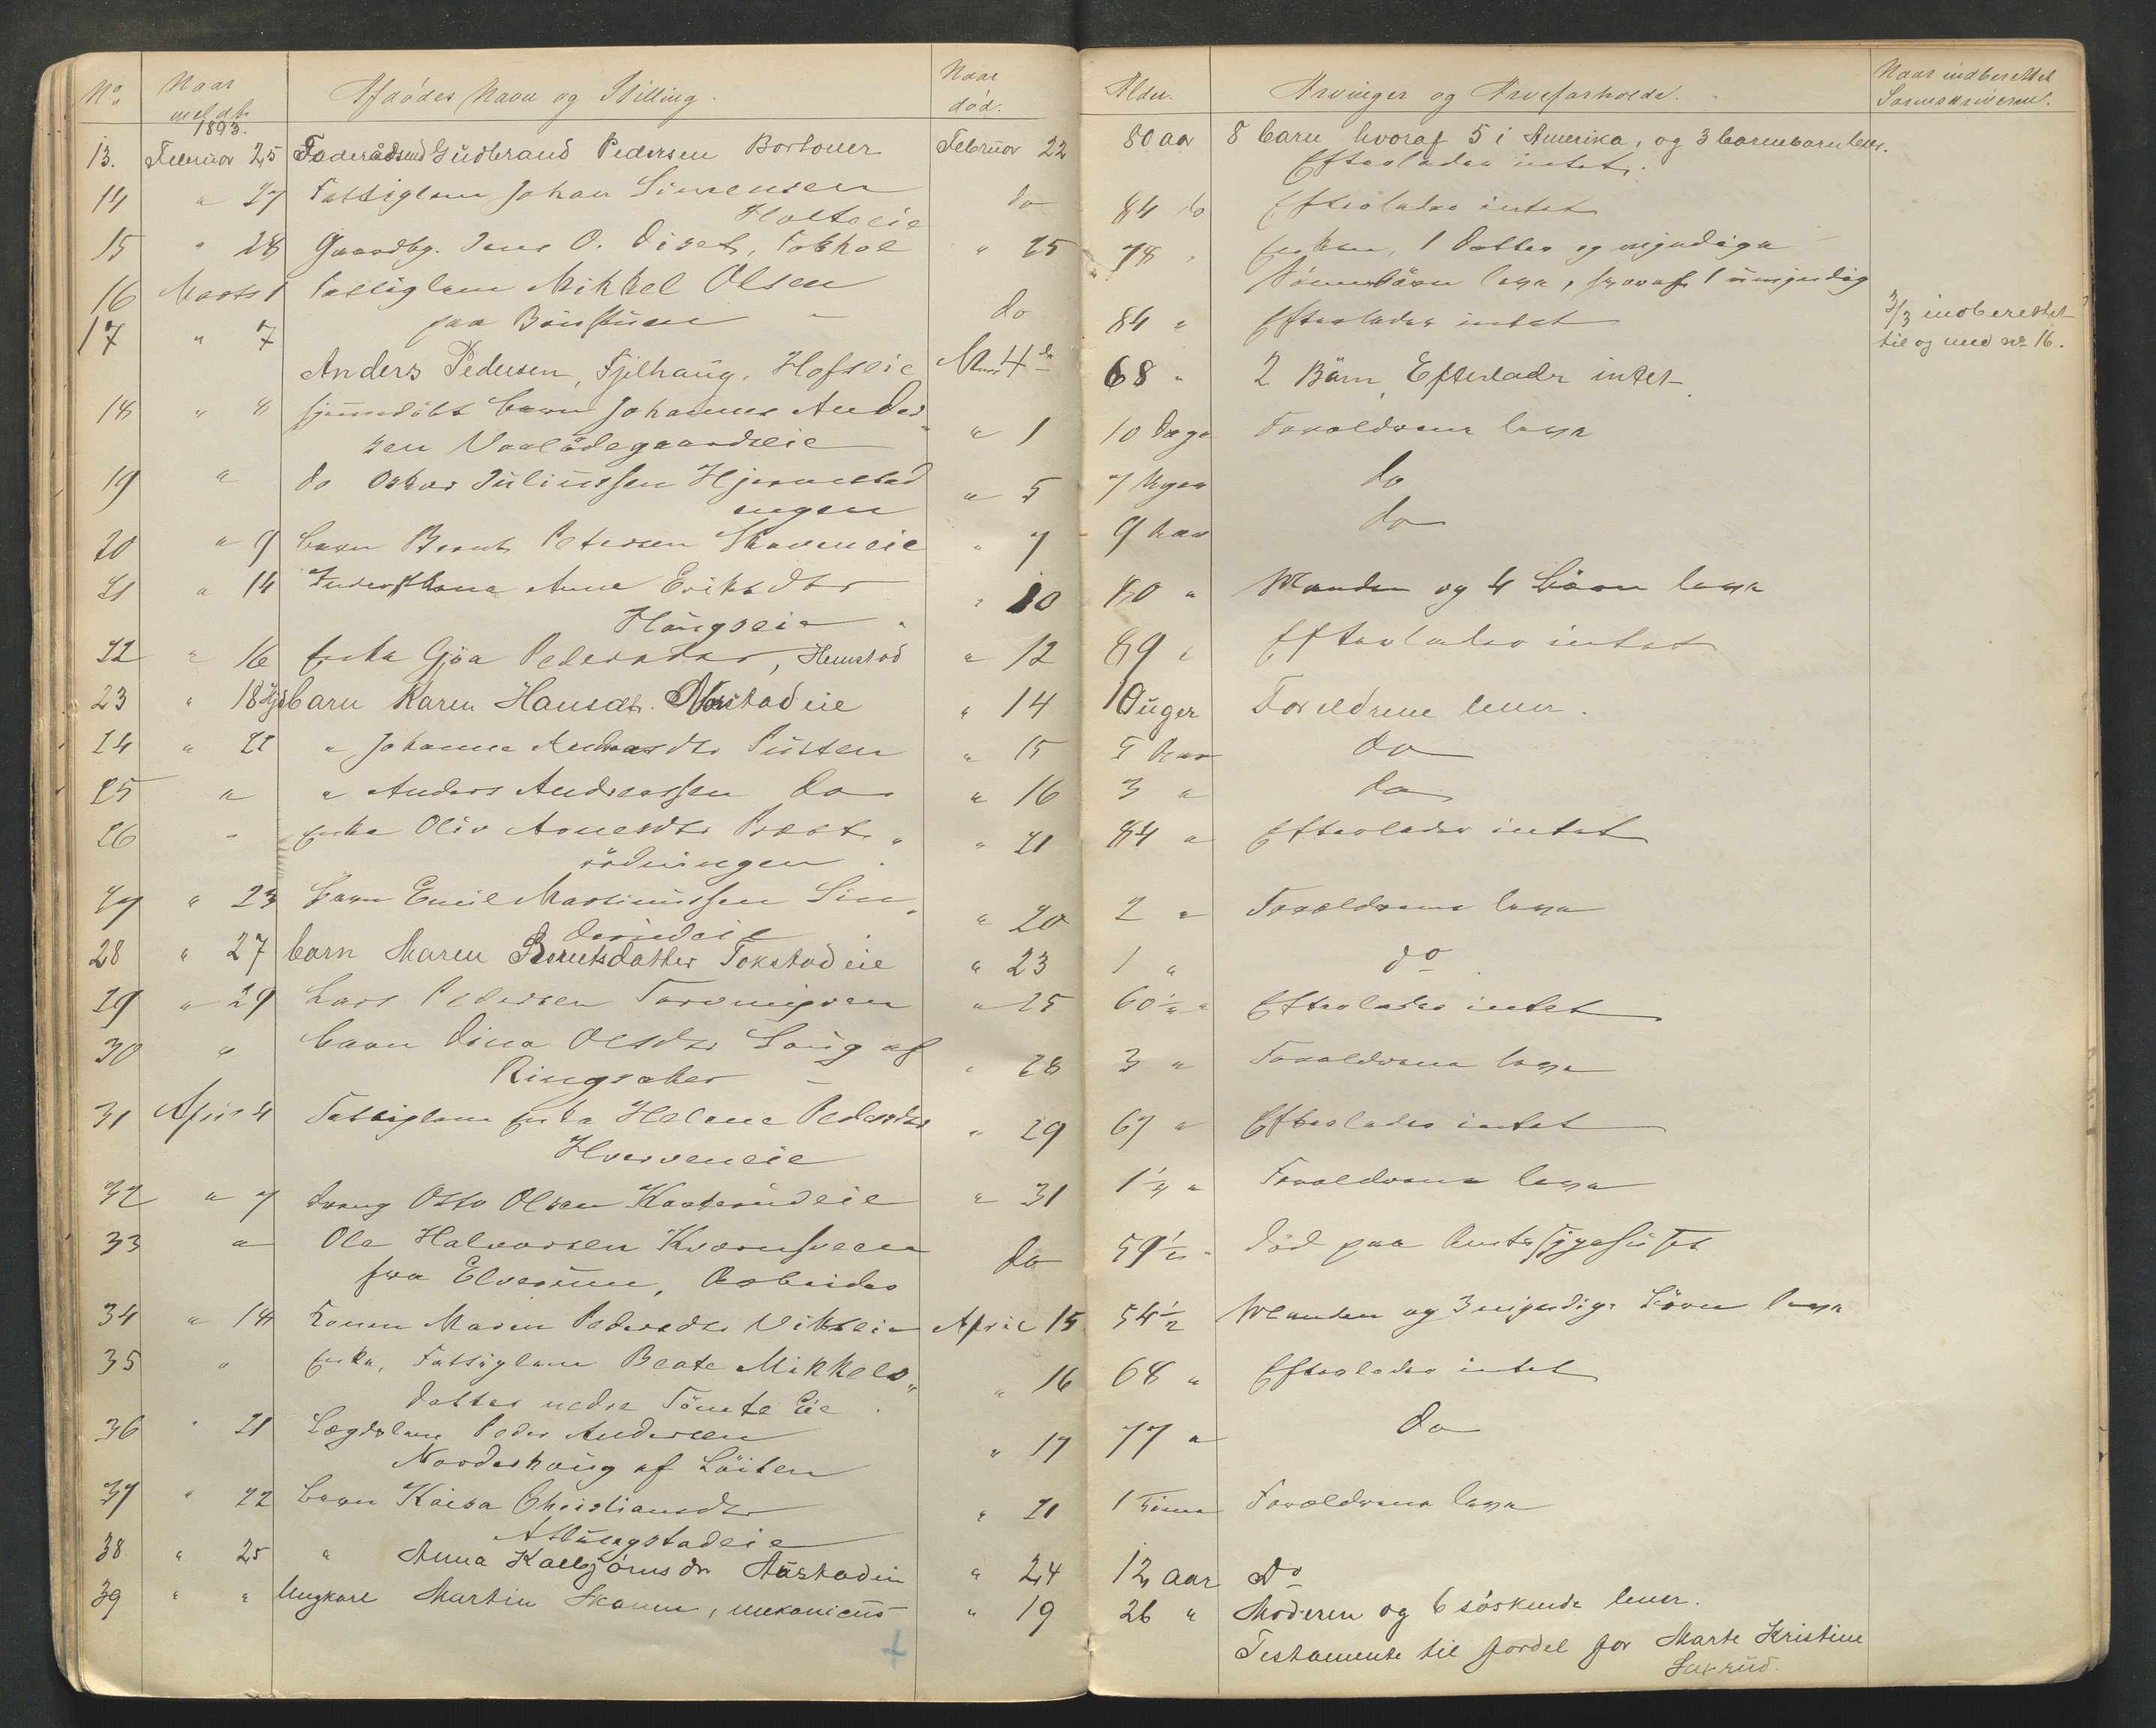 No. Naar meldt. Afdødes Navn og Stilling. Naar død. Alder. Arvinger og Arveforholde. Naar indberettet Sorenskriveren.
1893.
13. Februar 25 Føderaadsmd Gudbrand Pedersen Februar 22 80 aar 8 barn hvoraf 5 i Amerika, og 3 barnebarn lever.
Efterlader intet.
14 " 27 Fattiglem Johan Simensen do 84 do Efterlader intet
Holteeie
15 " 28 Gaardbg. Jens O. Diset, " 25 78 " Enken, 1 Datter og myndige
Sønnebørn leve, hvoraf 1 umyndig
16 Marts 1 Fattiglem Mikkel Olsen do 84 " Efterlader intet
paa
3/3 indberettet
til og med no 16.
17 " 7 Anders Pedersen, Fjelhaug, Hofseie Mars 4de 68 " 2 Børn, Efterlader intet
18 " 8 hjemmedøbt barn Johannes Ander„ " 1 10 Dage Forældrene leve
sen Vold​ødegaardseie
19 " do Oskar Juliussen Hjernstad " 5 do
engen
20 " 9 barn Bernt Petersen " 7 9 Aar do
21 " 14 Inderstkone Anne Eriksdtr " 10 80 " Manden og 4 Børn leve
Haugseie
22 " 16 Enke Gjøa Pedersdtr, Hemstad " 12 89 " Efterlader intet
23 " 18 barn Karen Hansdt. " 14 10 uger Foreldrene lever.
24 " 21 " Johanne Andreasdtr Pusten " 15 5 Aar do
25 " " Anders Andreassen do " 16 3 " do
26 " Enke Oliv Arnesdtr Præst„ " 21 84 " Efterlader intet
rødningen
27 " 23 barn Emil Martinussen Lin„ " 20 2 " Forældrene leve
derudeie
28 " 27 barn Maren Berntsdatter Tokstad eie " 23 1 " do
29 " 29 Lars Pedersen " 25 60½ " Efterlader intet
30 " barn Dina Olsdtr Laug af " 28 3 " Forældrene leve
Ringsaker
31 April 4 Fattiglem Enke Helene Pedersdtr " 29 67 " Efterlader intet
Hverveneie
32 " 7 dreng Otto Olsen Kaaterudeie " 31 " Forældrene leve
33 " Ole Halvorsen Kværnsveen do 59½ " død paa Amtssygehuset
fra Elverum, Arbeider
34 " 18 Konen Maren Pedersdtr Vikseie April 15 54½ Manden og 3 myndige Børn leve
35 " Enke, Fattiglem Beate Mikkels„ " 16 68 " Efterlader intet
datter nedre Tømte Eie
36 " 21 Lægdslem Peder Andersen " 17 77 " do
Nordershaug af Løiten
37 " 22 barn Kaisa Christiansdtr " 21 1 Time Forældrene leve
Atlungstadeie
38 " 25 " Anna Kolbjørnsdr " 24 12 aar Do
39 " " Ungkarl Martin Skaun, mekanicus " 19 26 " Moderen og 6 søskende lever.
Testamente til fordel for Marte Kristine
Saxrud.